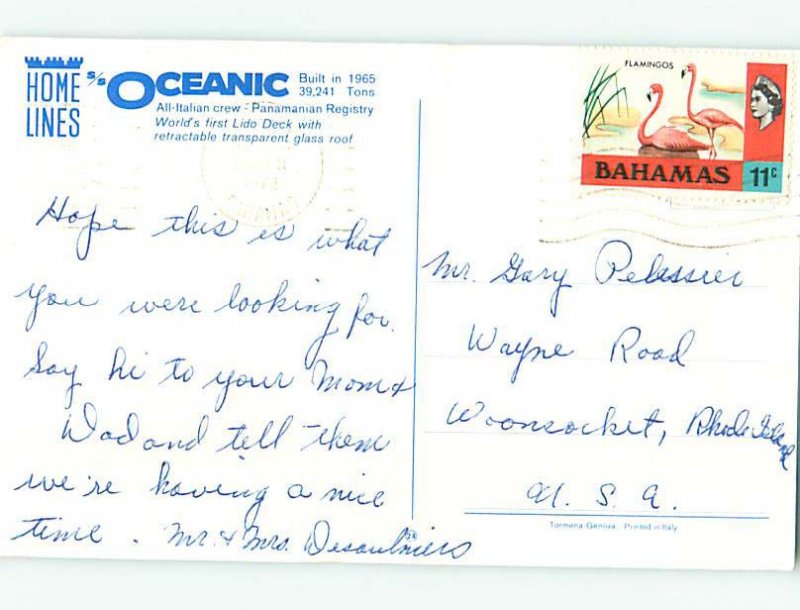 HOME LINES
s/s OCEANIC
Built in 1965
39,241 Tons
All-Italian crew - Panamanian Registry
World's first Lido Deck with
retractable transparent glass roof
FLAMINGOS
BAHAMAS 11c
Hope this is what
you were looking for.
Say hi to your Mom &
Dad and tell them
we're having a nice
time. Mr. & Mrs. Desaulniers
Mr. Gary Pelissier
Wayne Road
Woonsocket, Rhode Island
U. S. A.
Tormena-Genova. Printed in Italy